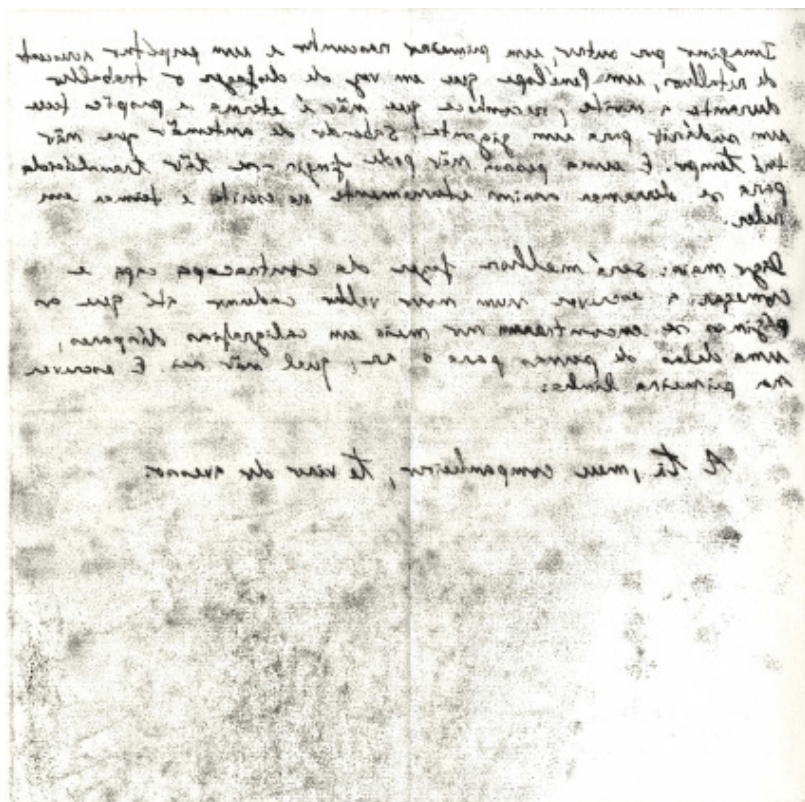 Imagino por outro, um primeiro rascunho e um
de retalhos, uma Penélope que em vez de desfazer o trabalho
durante a noite, reconhece que não é eterna e propõe tecer
um sudário para um gigante, sabendo de antemão que não
há tempo. E uma pessoa não pode fingir-se tão
para se derramar assim eternamente na escrita e em
Digo mais: será melhor fazer da contracapa capa e
começar a escrever num novo velho caderno até que as
páginas se encontrem no meio em caligrafias díspares,
uma delas de pernas para o ar, qual não sei. E escrever
na primeira linha:
A ti, meu companheiro, te viro do avesso.